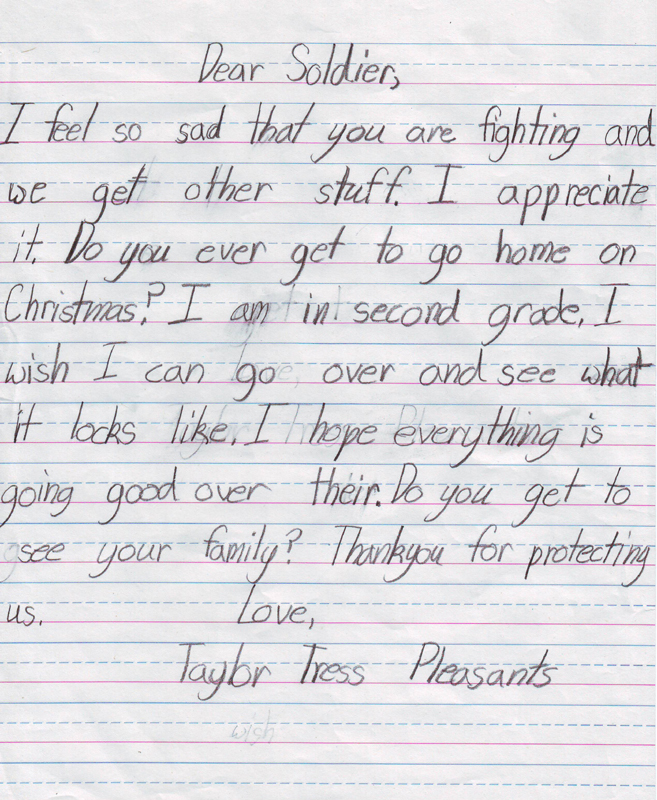 Dear Soldier,
I feel so sad that you are fighting and
we get other stuff. I appreciate
it. Do you ever get to go home on
Christmas? I am in second grade. I
wish I can go over and see what
it looks like. I hope everything is
going good over their. Do you get to
see your family? Thankyou for protecting
us. Love,
Taylor Tress Pleasants
wish